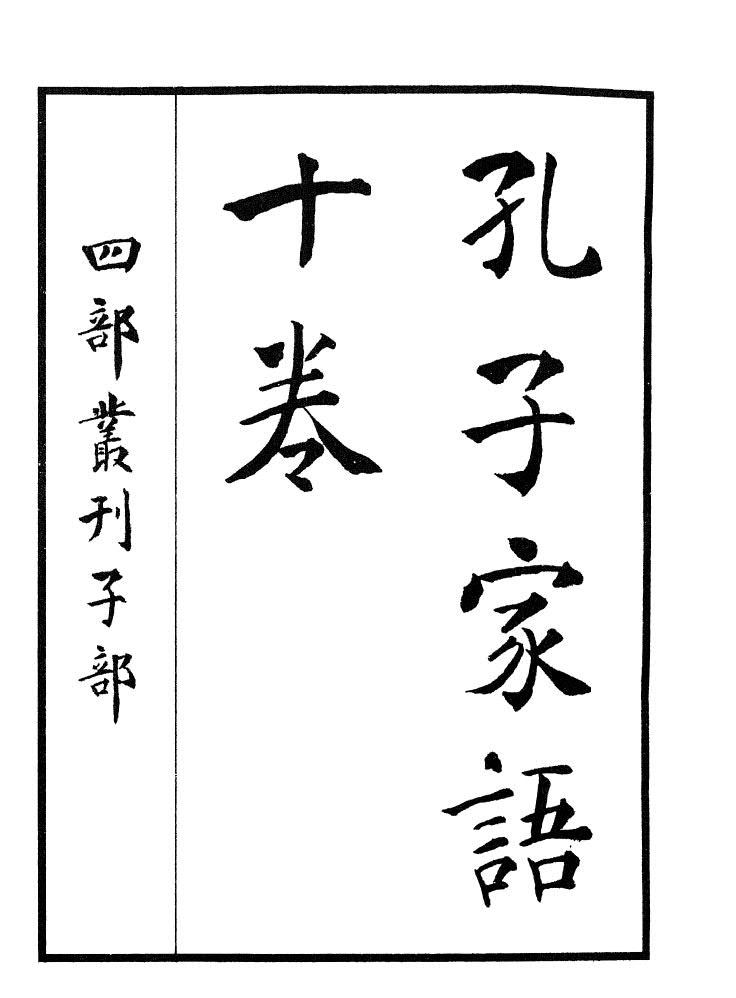 孔子家語
十卷
四部叢刊子部